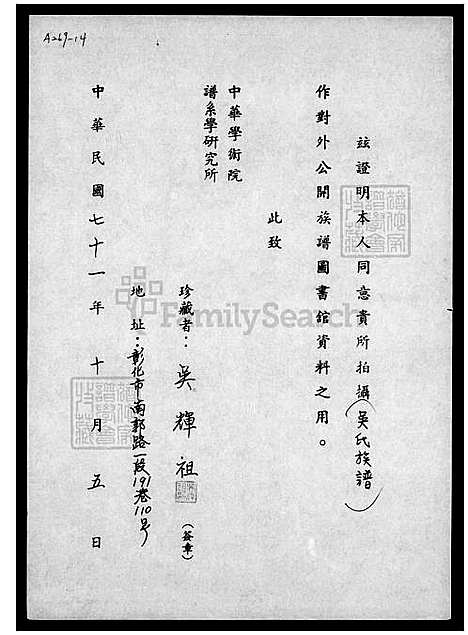 A269-14
茲證明本人同意貴所拍攝(吳氏族譜)
作對外公開族譜圖書館資料之用。
此致
中華學術院
譜系學研究所
珍藏者：吳輝祖
(簽章)
地址：彰化市南郭路一段191巷110号
中華民國七十一年十月五日
FamilySearch